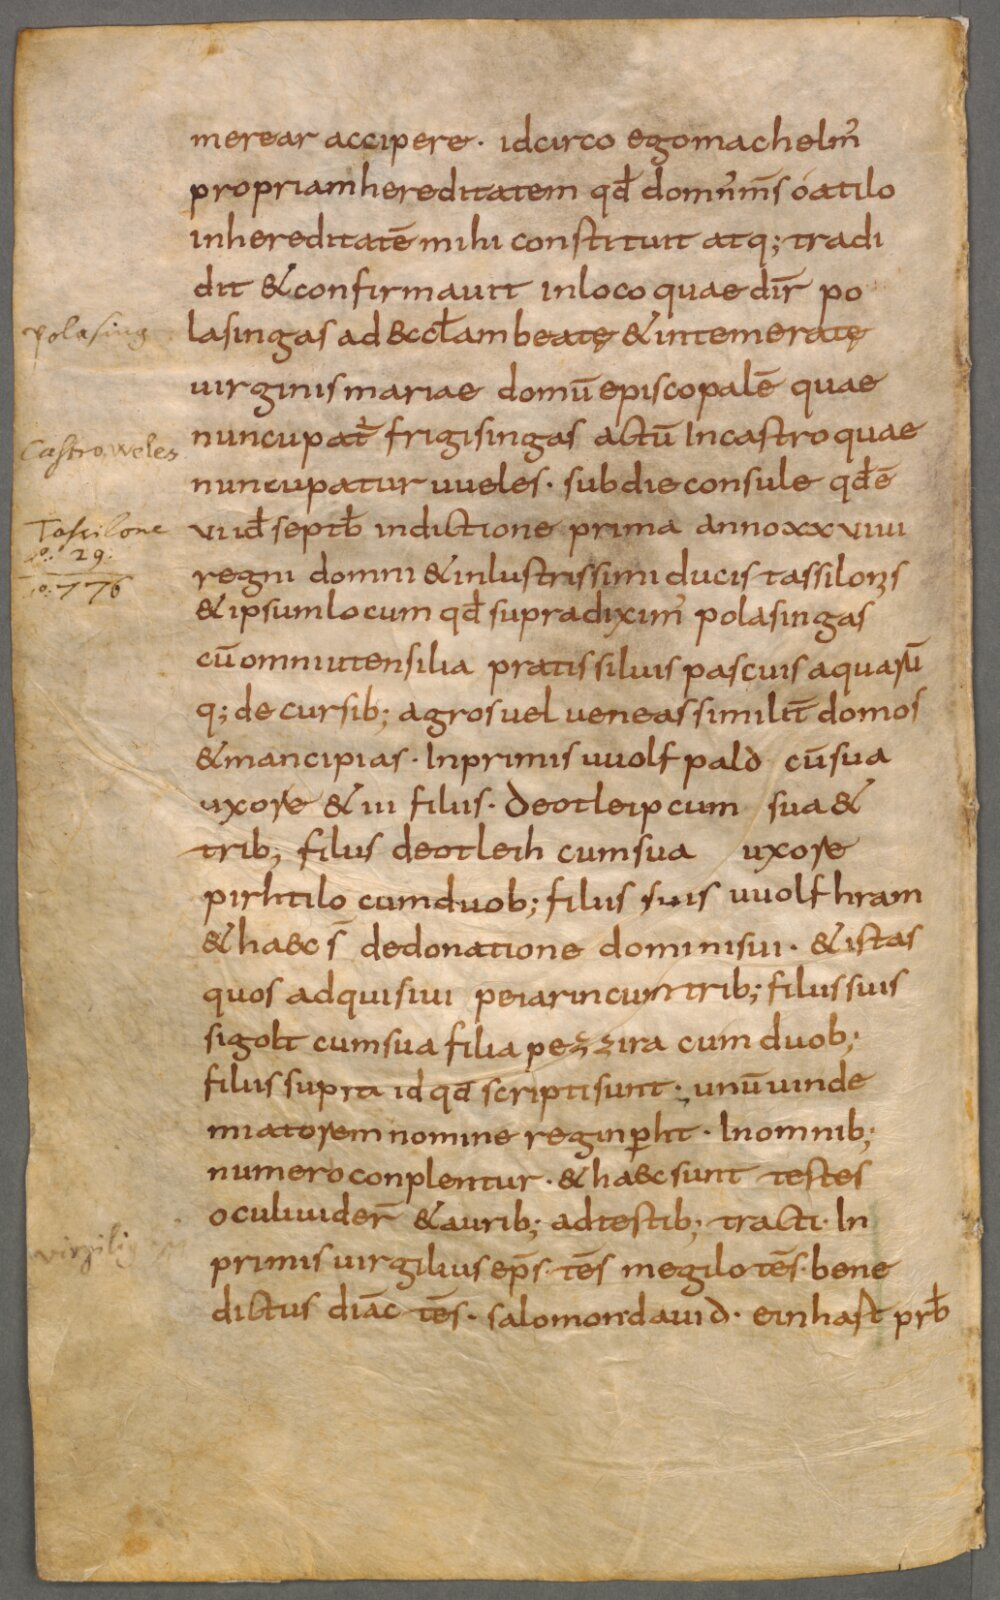 merear accipere· idcirco ego machelm̄
propriam hereditatem qđ domn̄ m̄s oatilo
in hereditatē mihi constituit atq; tradi
dit & confirmauit in loco quae dir̄ po
polasing
lasingas ad &ccl̄am beatę & intemeratę
uirginis mariae domū episcopalē quae
Castro weles
nuncupat̄ frigisingas actū In castro quae
nuncupatur uueles· sub die consule qđ ē
Tassilone
29.
776
vi iđ septb̄ indictione prima anno xxviiii
regni domni & inlustrissimi ducis tassilonis
& ipsum locum qđ supradixim̄ polasingas
cū omni utensilia pratis siluis pascuis aquarū
q; de cursib; agros uel veneas similit̄ domos
& mancipias· In primis uuolfpald cū sua
uxore & iii filiis· deotleip cum sua &
trib; filiis deotleih cum sua uxore
pirhtilo cum duob; filiis suis uuolfhram
& ha&c s̄ de donatione domini sui· & istas
quos adquisiui peiarin cum trib; filiis suis
sigolt cum sua filia pezzira cum duob;
filiis supra id qđ scripti sunt· unū uinde
miatorem nomine reginp̱ht· In omnib;
numero conplentur· & ha&c sunt testes
oculi uider̄ & aurib; ad testib; tracti· In
virgiliq
primis uirgilius ep̄s· tēs megilo tēs· bene
dictus diāc tēs· salomon· dauid· einhast prb̄